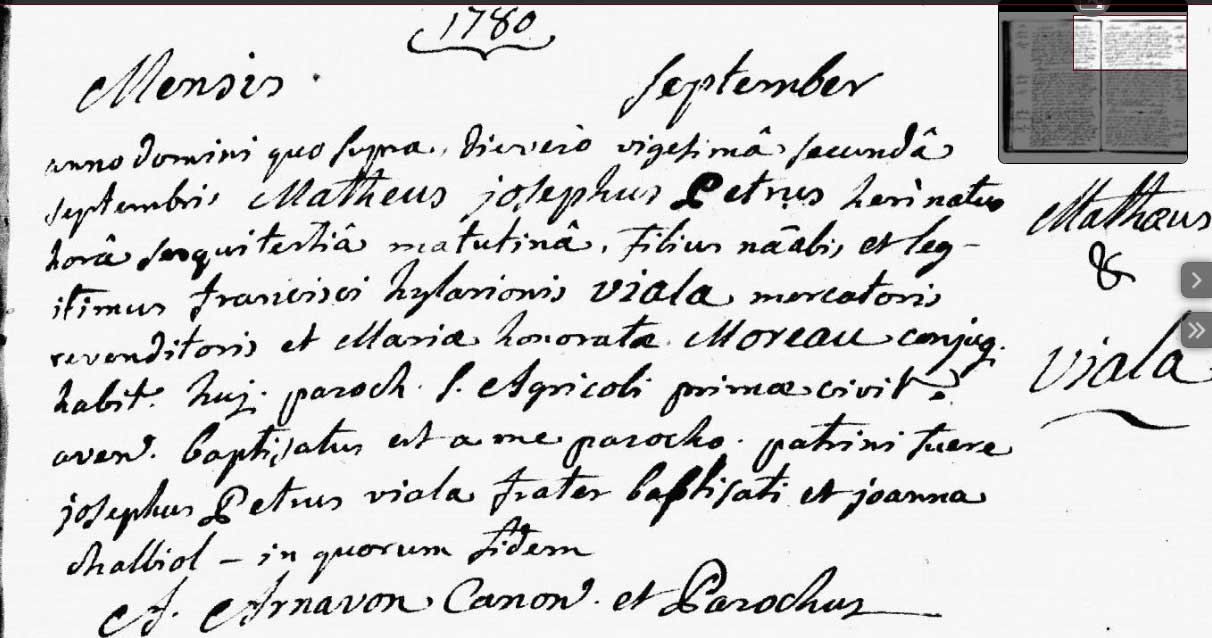 1780
Mensis September
anno domini quo supra, die vero vigesimâ secundâ
septembris Mattheus josephus Petrus heri natus
horâ sesquitertiâ matutinâ, filius nãalis et leg-
itimus francisci hylarionis viala mercatoris
revenditoris et Mariæ honoratæ Moreau conjug.
habit. huj. paroch. S. Agricoli primæ civit.
aven. baptisatus est a me parocho. patrini fuere
josephus Petrus viala frater baptisati et joanna
chalbiol – in quorum fidem
A. Arnavon Canon. et Parochus
Mathæus
&
viala